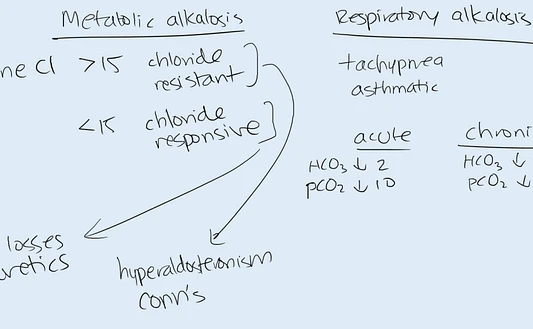 Metabolic alkalosis
ne Cl >15 chloride
resistant
<15 chloride
responsive
losses
retics
hyperaldosteronism
conn's
Respiratory alkalosis
tachypnea
asthmatic
acute
HCO3 ↓ 2
pCO2 ↓ 10
chroni
HCO3 ↓
pCO2 ↓